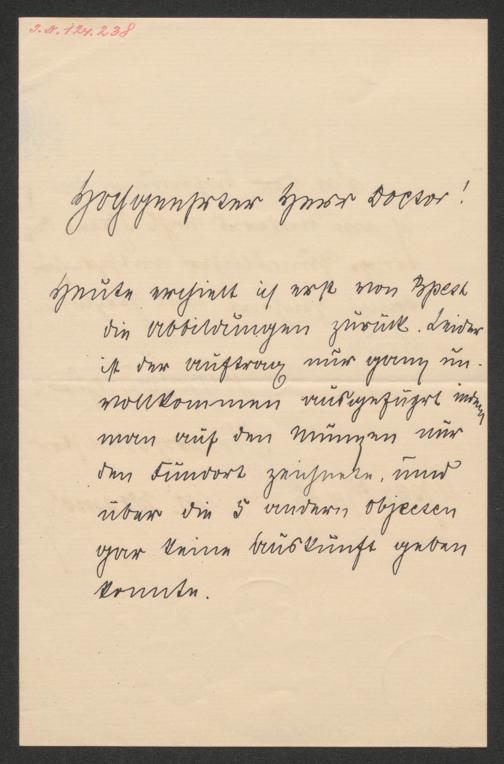 J.N. 124.238
Hochgeehrter Herr Doctor!
Heute erhielt ich erst von Bpest
die Abbildungen zurück. Leider
ist der Auftrag nur ganz un-
vollkommen ausgeführt indem
man auf den Münzen nur
den Fundort zeichnete, und
über die 5 andern Objecten
gar keine Auskunft geben
konnte.